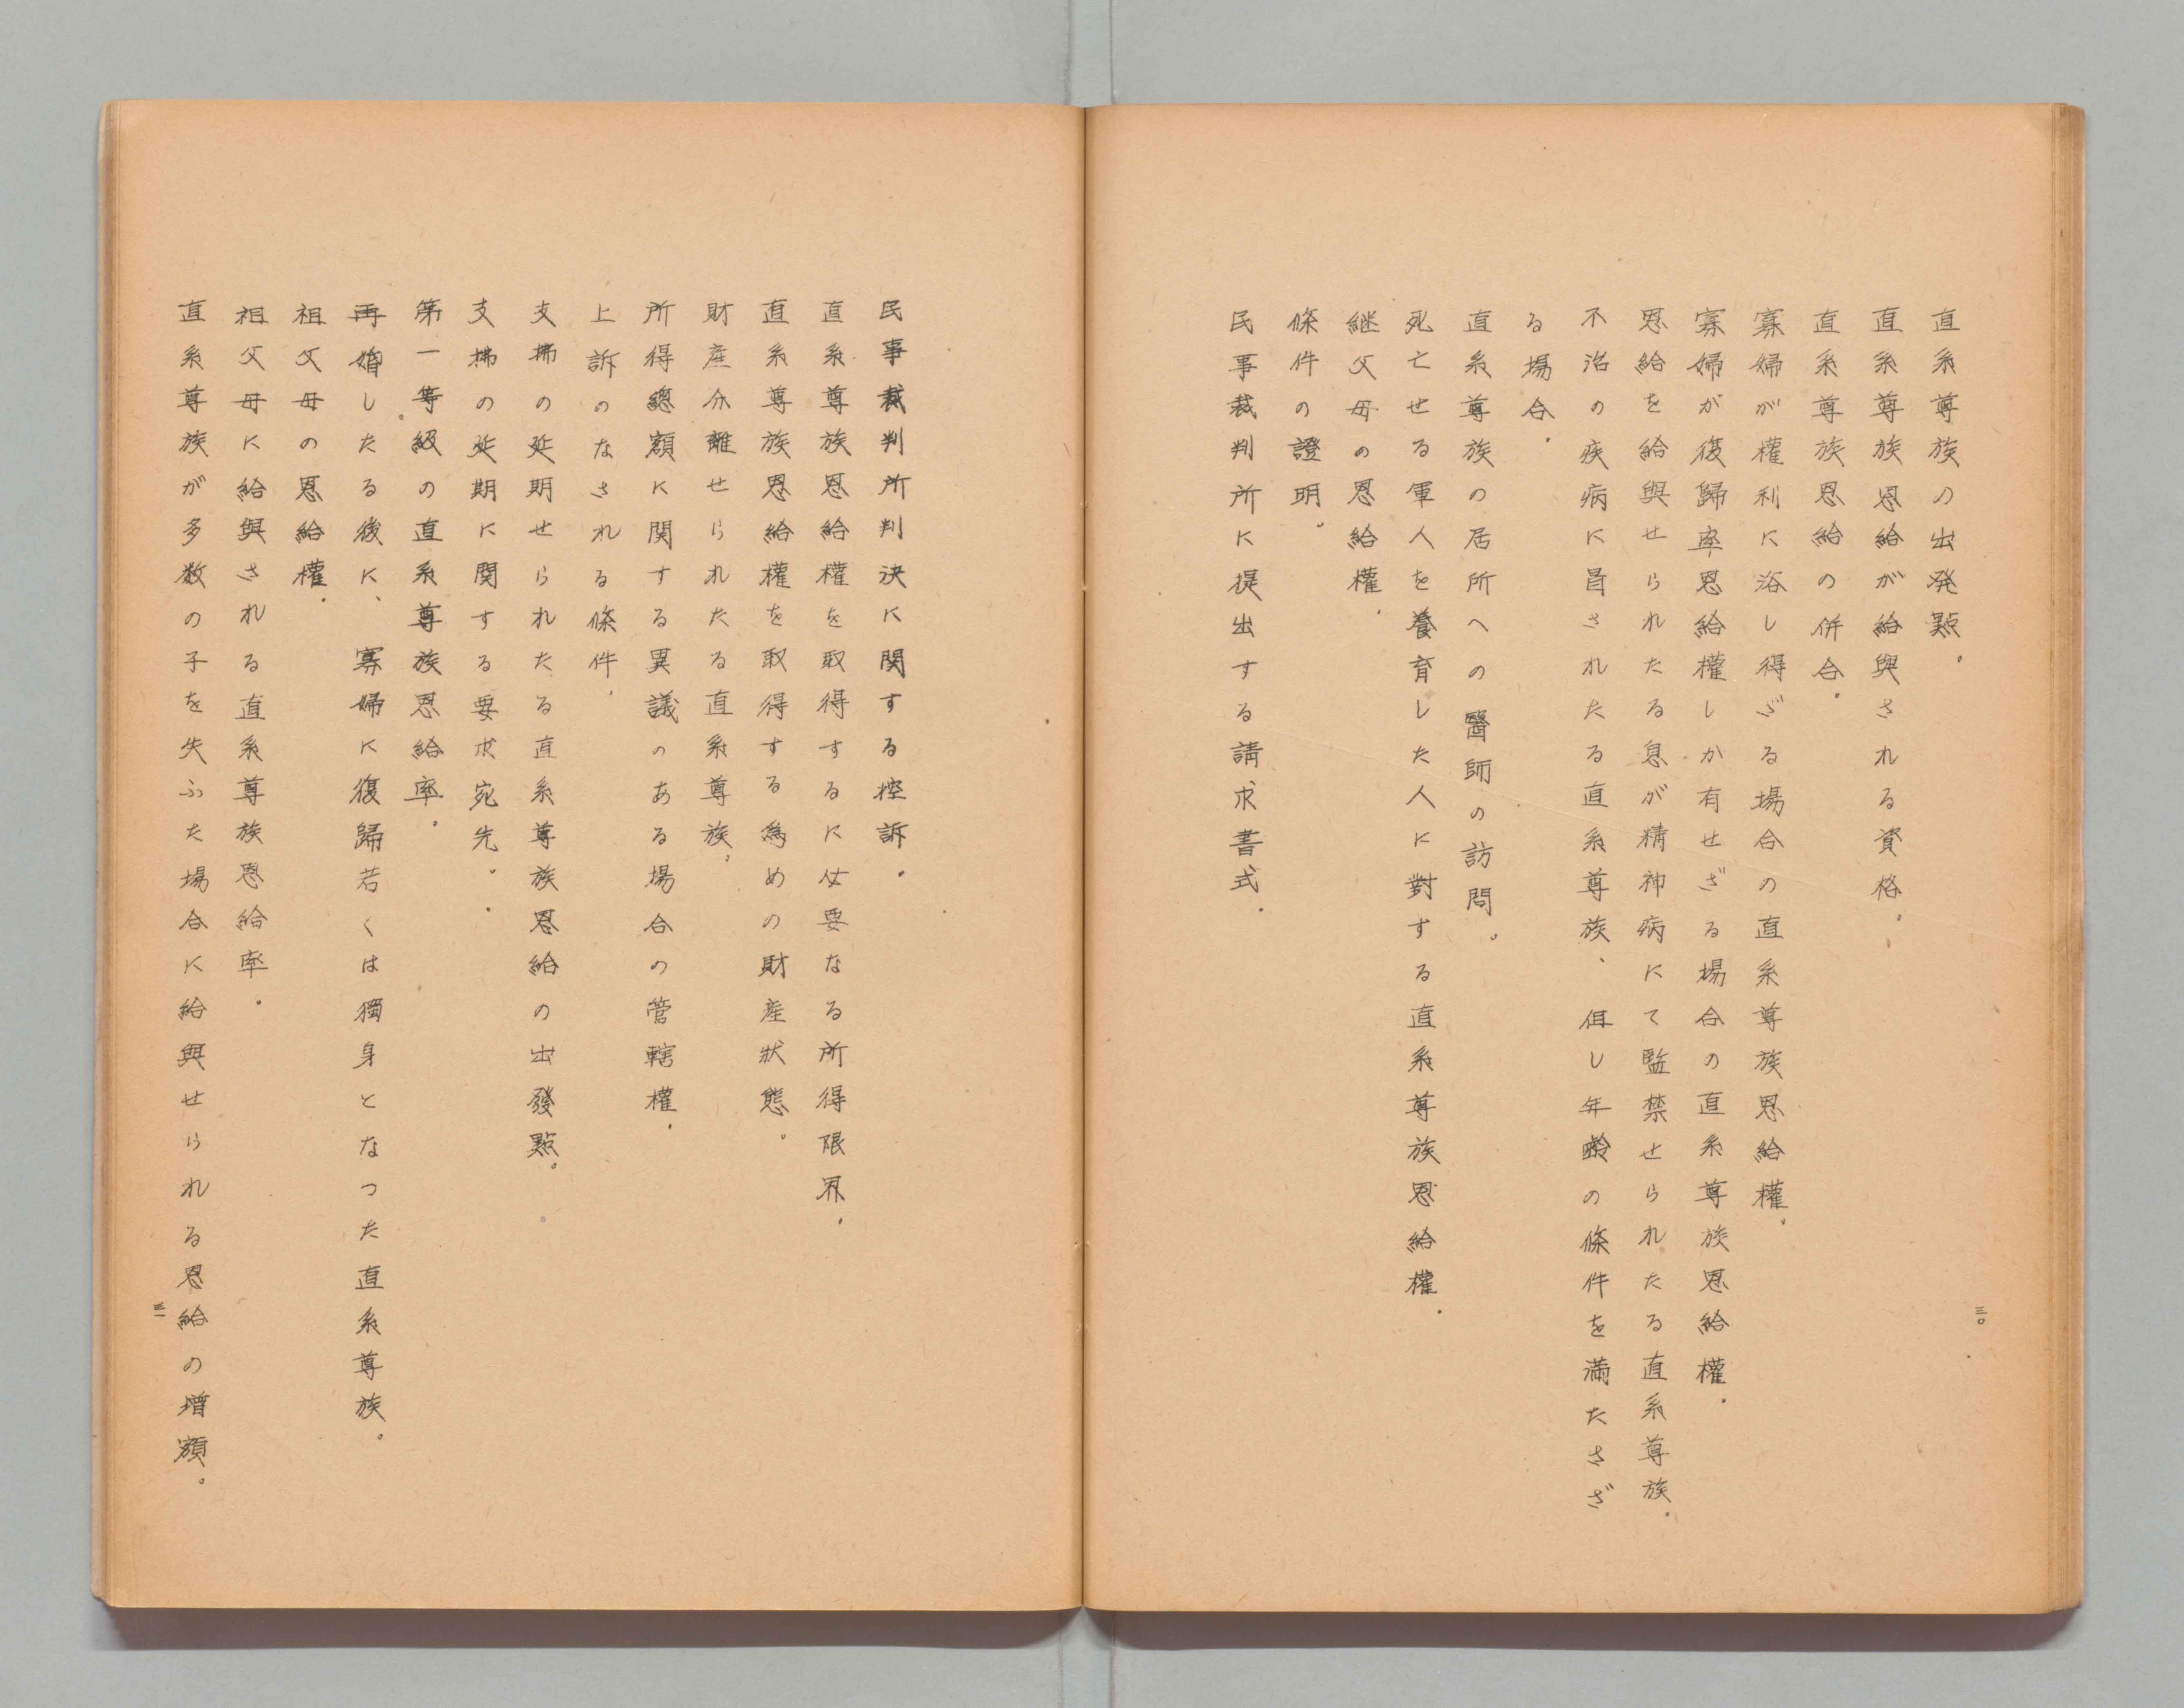 直系尊族の出発點。
直系尊族恩給が給與される資格。
直系尊族恩給の併合。
寡婦が權利に浴し得ざる場合の直系尊族恩給權。
寡婦が復歸率恩給權しか有せざる場合の直系尊族恩給權。
恩給を給與せられたる息が精神病にて監禁せられたる直系尊族。
不治の疾病に冒されたる直系尊族、但し年齢の條件を満たさざ
る場合。
直系尊族の居所への醫師の訪問。
死亡せる軍人を養育した人に對する直系尊族恩給權。
継父母の恩給權。
條件の證明。
民事裁判所に提出する請求書式。
三〇
民事裁判所判決に関する控訴。
直系尊族恩給權を取得するに必要なる所得限界。
直系尊族恩給權を取得する為めの財産狀態。
財産分離せられたる直系尊族。
所得總額に関する異議のある場合の管轄權。
上訴のなされる條件。
支拂の延期せられたる直系尊族恩給の出發點。
支拂の延期に関する要求宛先。
第一等級の直系尊族恩給率。
再婚したる後に、寡婦に復歸若くは獨身となつた直系尊族。
祖父母の恩給權。
祖父母に給與される直系尊族恩給率。
直系尊族が多数の子を失ふた場合に給與せられる恩給の増額。
三一